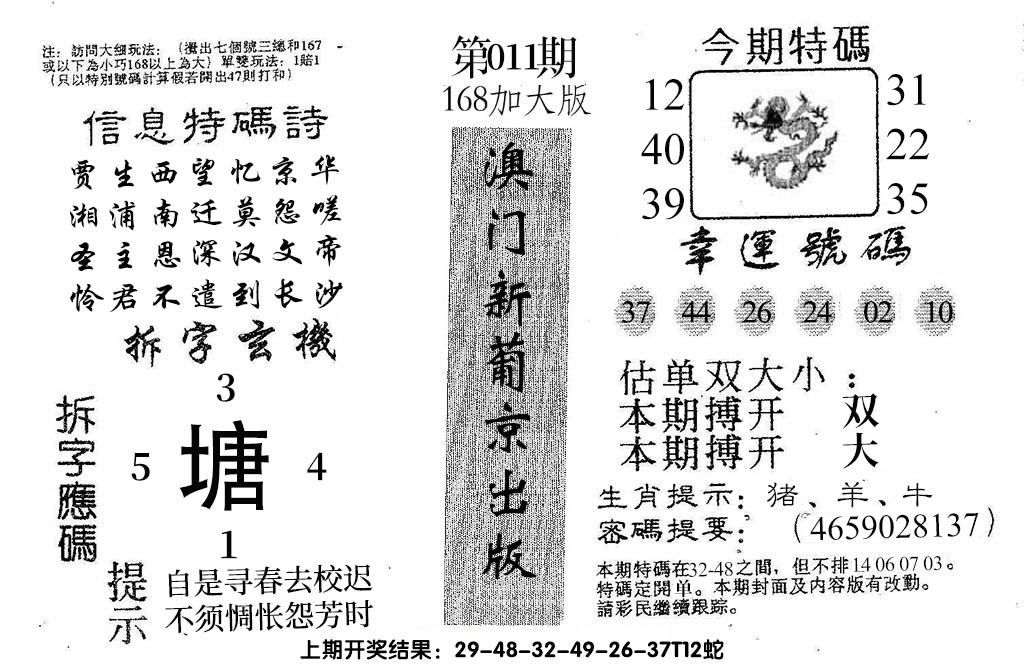 注：訪問大細玩法：（攪出七個號三總和167
或以下為小巧168以上為大）單雙玩法：1賠1
（只以特別號碼計算假若開出47則打和）
信息特碼詩
贾生西望忆京华
湘浦南迁莫怨嗟
圣主恩深汉文帝
怜君不遣到长沙
拆字玄機
拆字應碼
3
5 塘 4
1
提示
自是寻春去校迟
不须惆怅怨芳时
第011期
168加大版
澳门新葡京出版
今期特碼
12 31
40 22
39 35
幸運號碼
37 44 26 24 02 10
估单双大小：
本期搏开 双
本期搏开 大
生肖提示：猪、羊、牛
密碼提要：（4659028137）
本期特碼在32-48之間，但不排14 06 07 03。
特碼定開单。本期封面及内容版有改動。
請彩民繼續跟踪。
上期开奖结果：29-48-32-49-26-37T12蛇